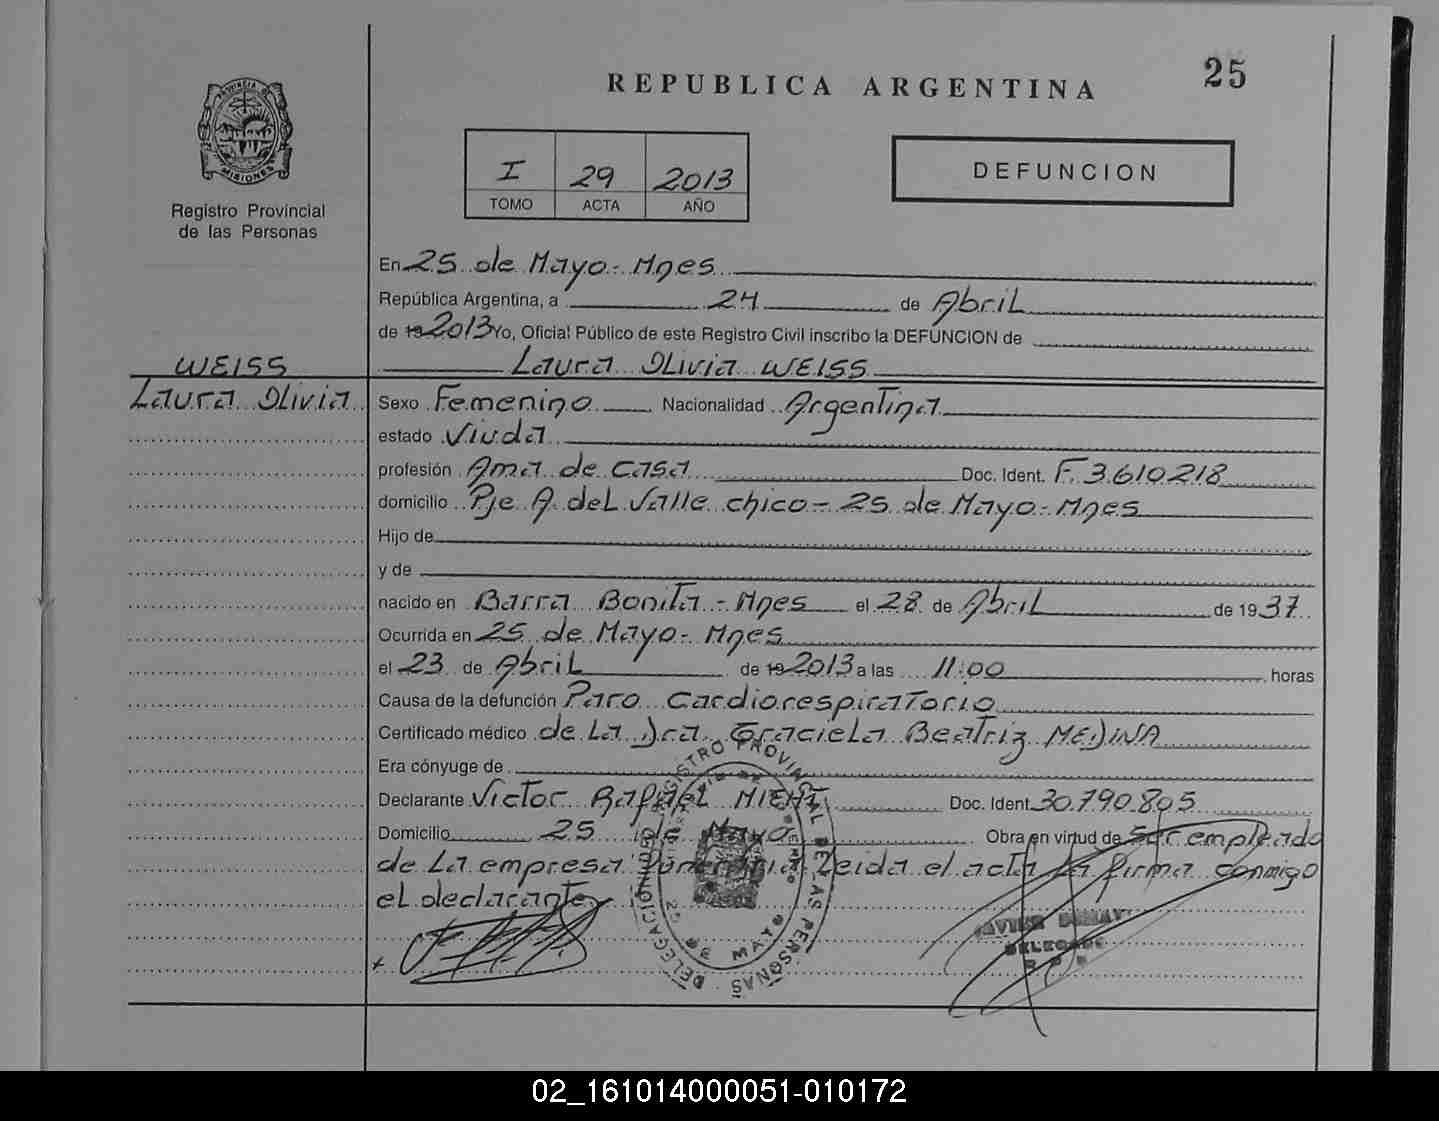 25
REPUBLICA ARGENTINA
PROVINCIA DE
MISIONES
Registro Provincial
de las Personas
I 29 2013
TOMO ACTA AÑO
DEFUNCION
En 25 de Mayo - Mnes
República Argentina, a 24 de Abril
de 19 2013 Yo, Oficial Público de este Registro Civil inscribo la DEFUNCION de
WEISS
Laura Olivia WEISS
Laura Olivia
Sexo Femenino Nacionalidad Argentina
estado Viuda
profesión Ama de casa Doc. Ident. F. 3.610.218
domicilio Pje A. del Valle chico - 25 de Mayo - Mnes
Hijo de
y de
nacido en Barra Bonita - Mnes el 28 de Abril de 19 37
Ocurrida en 25 de Mayo - Mnes
el 23 de Abril de 19 2013 a las 11:00 horas
Causa de la defunción Paro Cardiorespiratorio
Certificado médico de La Dra. Graciela Beatriz MEDINA
Era cónyuge de
Declarante Victor Rafael Doc. Ident 30.790.805
Domicilio 25 de Mayo Obra en virtud de Ser empleado
de La empresa funeraria Leida el acta La firma conmigo
el declarante
DELEGACION DEL REGISTRO PROVINCIAL DE LAS PERSONAS
25 DE MAYO
DELEGADO
02_161014000051-010172